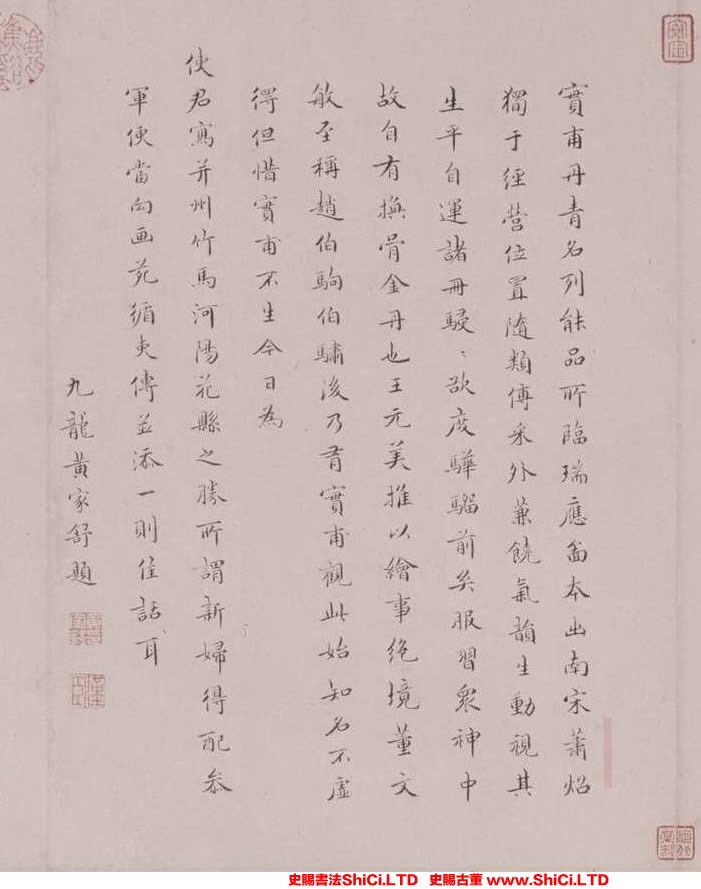 實甫丹青名列能品所臨瑞應啚本出南宋蕭炤
獨于經營位置隨類傅采外兼饒氣韻生動視其
生平自運諸冊駸〻欲度驊騮前矣服習衆神中
故自有換骨金丹也王元美推以繪事絶境董文
敏至稱趙伯駒伯驌後乃有實甫觀此始知名不虛
得但惜實甫不生今日為
使君寫并州竹馬河陽花縣之勝所謂新婦得配參
軍使當向画苑循吏傳並添一則佳話耳
九龍黃家舒題
史賜書法ShiCi.LTD 史賜古董 www.ShiCi.LTD